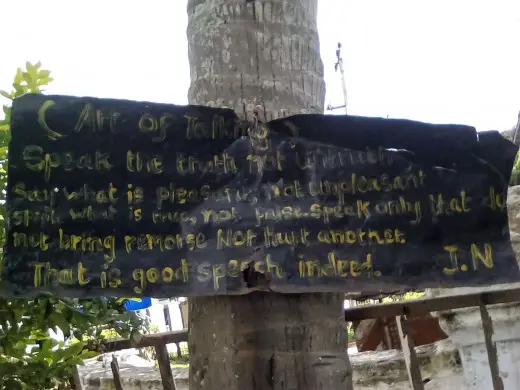 ( Art of Talking )
Speak the truth not untruth
Say what is pleasant, not unpleasant
what is true, not false speak only that do
not bring remorse Nor hurt another
That is good speech indeed. J.N